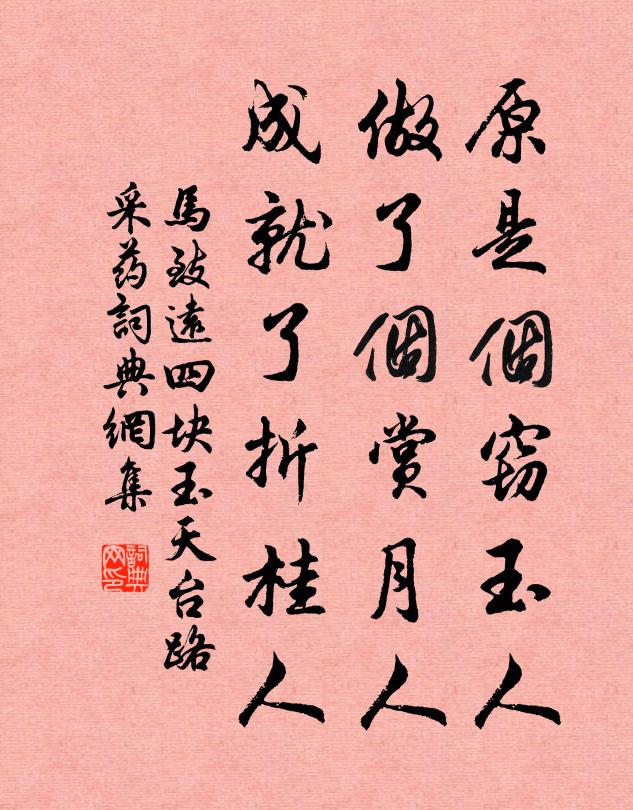 原是個窃玉人
做了個賞月人
成就了折桂人
馬致遠四块玉天台路
采药詞典網集
詞典网印